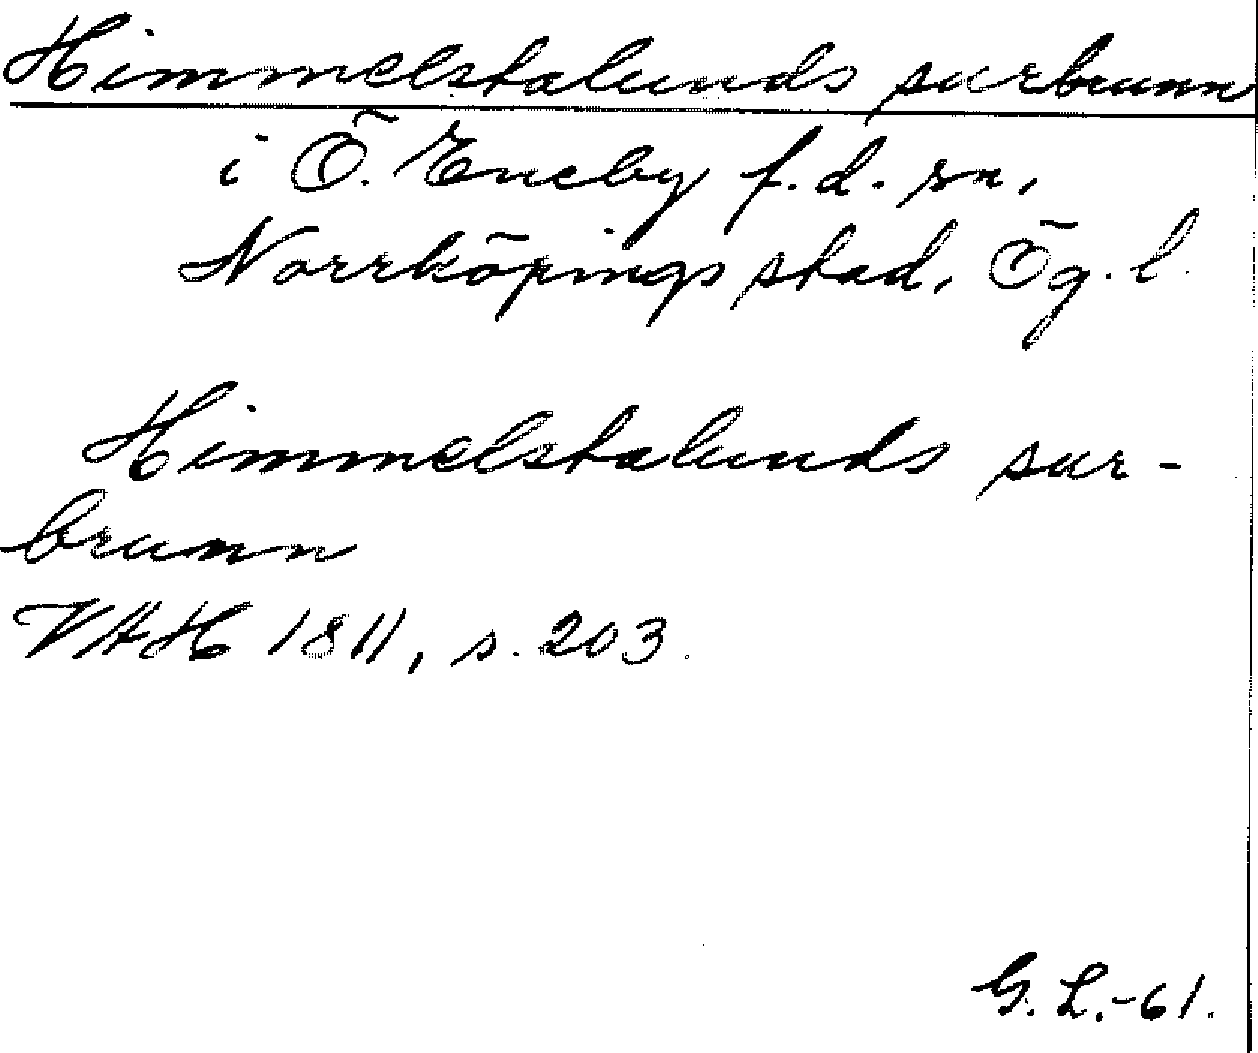 Himmelstalunds surbrunn
i Ö. Eneby f.d. sn,
Norrköpings stad, Ög. l.
Himmelstalunds sur-
brunn
VAH 1811, s. 203.
G. L.-61.